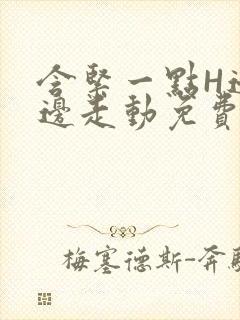 含緊一點H邊
邊走動免費
梅塞德斯-奔馳